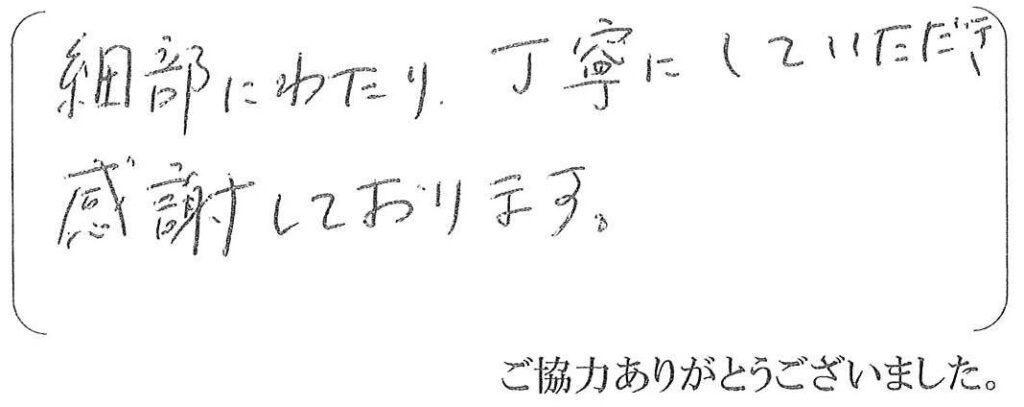 細部にわたり、丁寧にしていただき
感謝しております。
ご協力ありがとうございました。